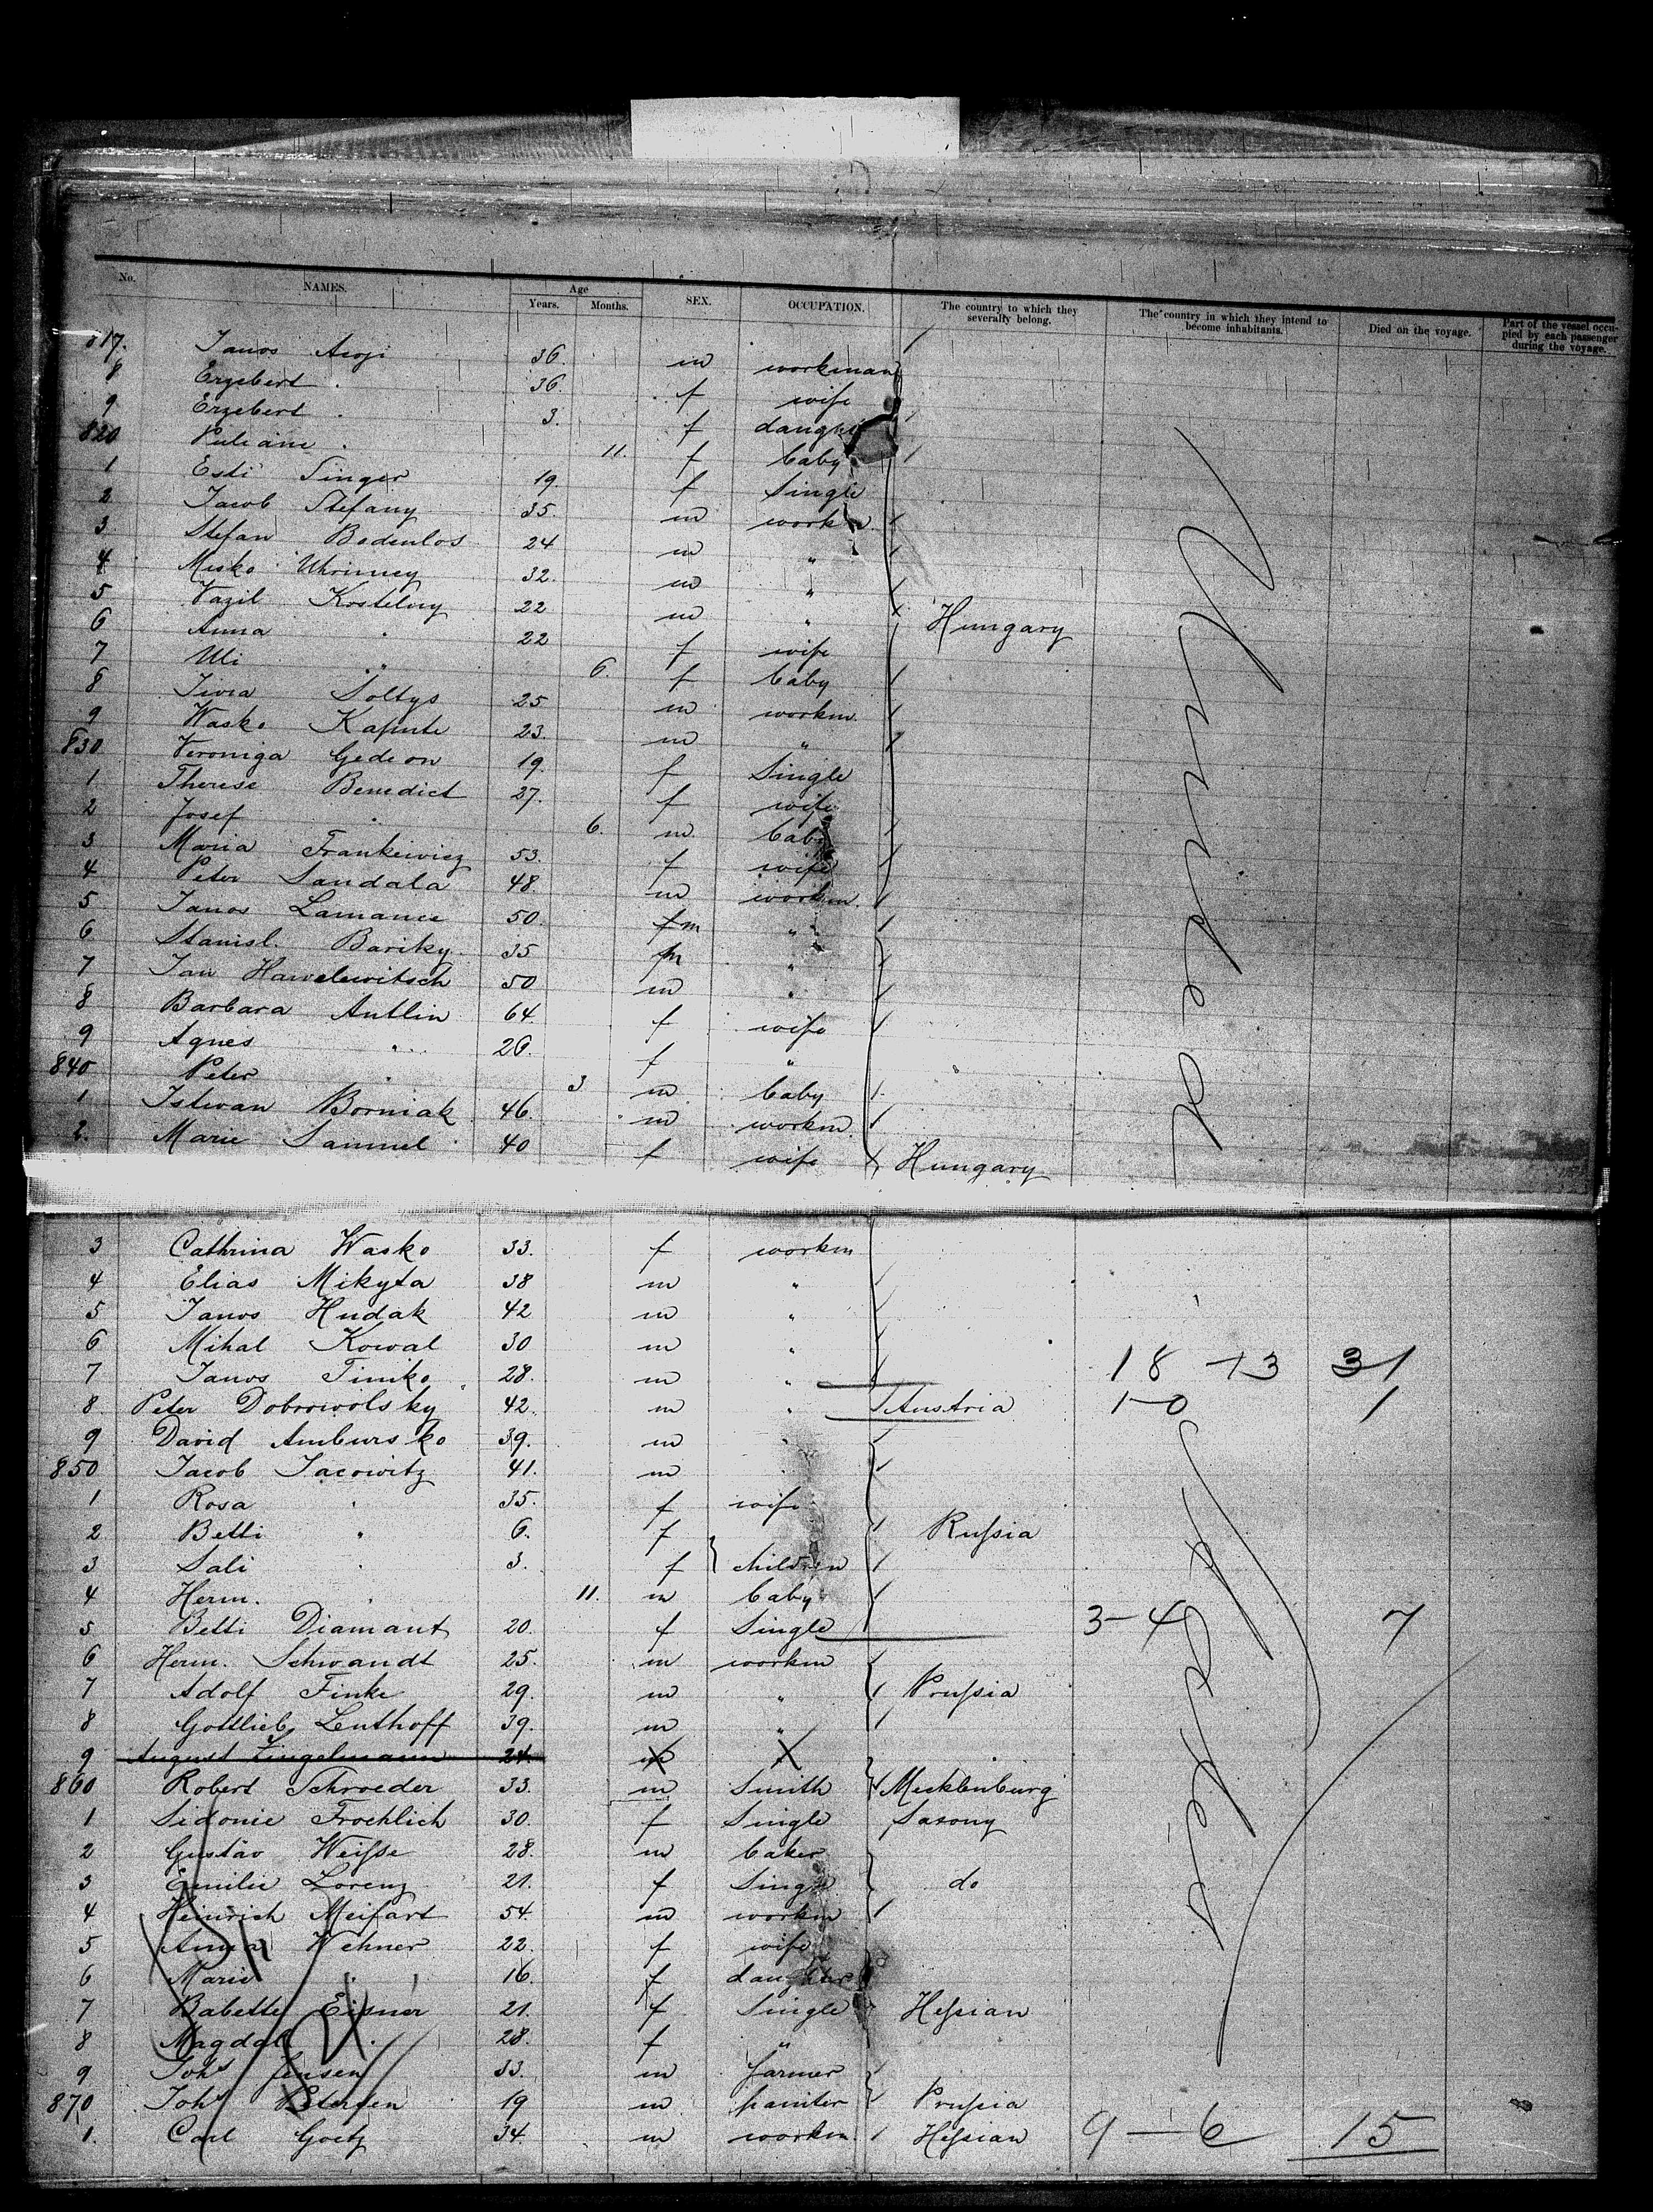 No. NAMES. Age Years. Months. SEX. OCCUPATION. The country to which they severally belong. The country in which they intend to become inhabitants. Died on the voyage. Part of the vessel occupied by each passenger during the voyage.
817. Janos 36. m workman
8 Erzebert . 36. f wife
9 Erzebert . 3. f
820 . 11. f baby
1 Esti Singer 19. f Single
2 Jacob Stefany 35. m
3 Stefan Bodenlos 24 m "
4 Misko 32. m "
5 Vazil Kostelny 22 m " Hungary
6 Anna " 22 f wife
7 Uli " 6. f baby
8 Iwra Soltys 25 m workm.
9 Wasko 23. m "
830 Veroniga Gedeon 19. f Single
1 Therese Benedict 27. f wife
2 Josef " 6. m baby
3 Maria Frankewicz 53. f wife
4 Peter Sandala 48. m workm.
5 Janos Lamanec 50 m "
6 Stanisl. Bariky 35 m "
7 Jan Hawelewitsch 50 m "
8 Barbara Antlin 64. f wife
9 Agnes " 26. f "
840 Peter " 3 m baby
1 Istwan Borniak 46. m workm.
2. Marie Samuel 40 f wife Hungary
3 Cathrina Wasko 33. f workm
4 Elias Mikyta 38 m "
5 Janos Hudak 42 m "
6 Mihal Kowal 30 m "
7 Janos Timko 28. m " 18 – 13 31
8. Peter Dobrowolsky 42. m " Austria 1–0 1
9 David Ambursko 39. m "
850 Jacob Jacowitz 41. m "
1 Rosa " 35. f wife
2 Betti " 6. f Russia
3 Sali " 3. f children
4 Herm. " 11. m baby
5 Betti Diamant 20. f Single 3–4 7
6 Herm. Schwandt 25. m workm
7 Adolf Finke 29. m " Prussia
8 Gottlieb Lenthoff 39. m "
9 August Lingelmann 24. m
860 Robert Schroeder 33. m Smith Mecklenburg
1 Sidonie Froehlich 30. f Single Saxony
2 Gustav Weisse 28. m baker
3 Emilie Lorenz 21. f Single do
4 Heinrich Meifart 54. m workm
5 Anna Wehner 22. f wife
6 Marie " 16. f daughter
7 Babette Eisner 21. f Single Hessian
8 Magdal. " 28. f "
9 Johs Jensen 33. m farmer
870 Johs Petersen 19 m painter Prussia
1. Carl Goetz 34. m workm. Hessian 9 – 6 15